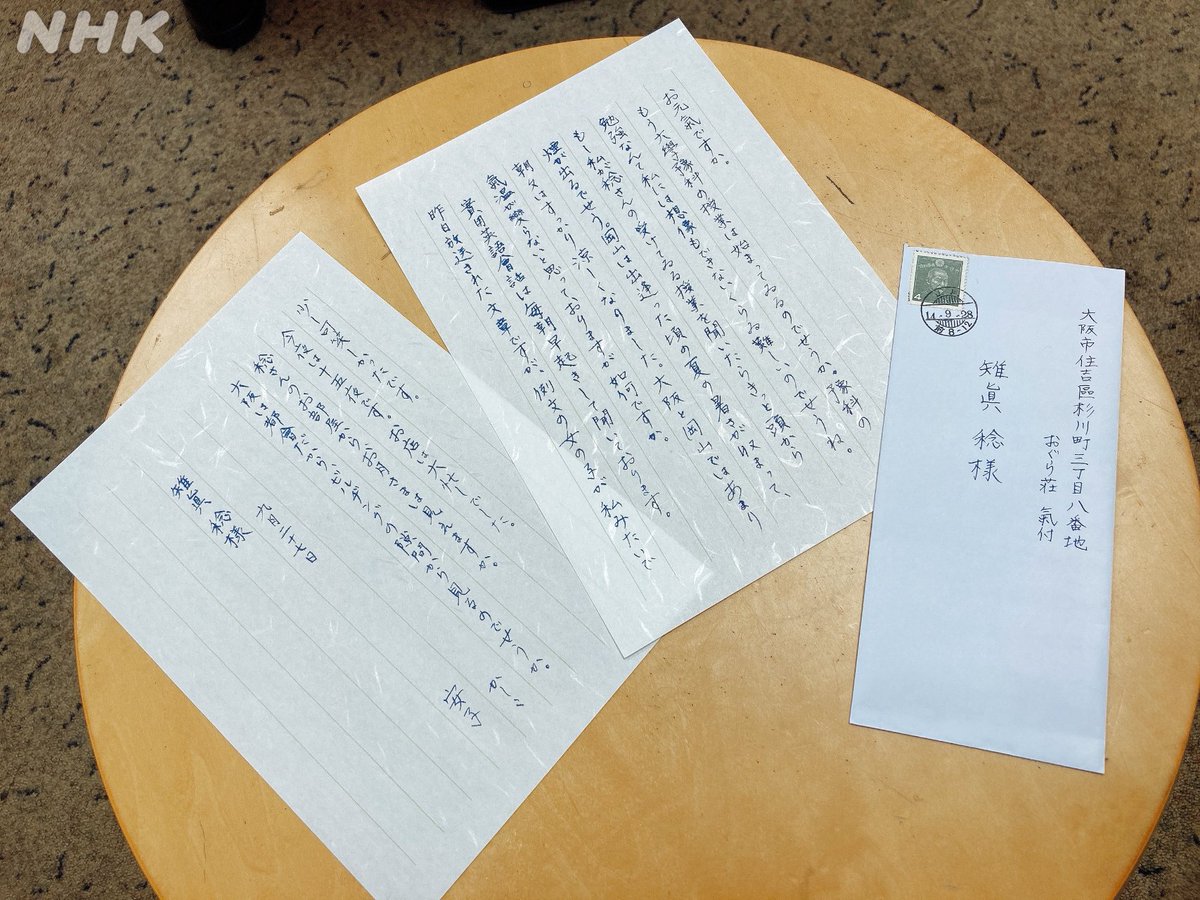 NHK
お元氣ですか。
もう大學豫科の授業は始まってゐるのでせうか。豫科の
勉強なんて私には想像もできないくらゐ難しいのでせうね。
もし私が稔さんの受けてゐる授業を聞いたらきっと頭から
煙が出るでせう。岡山は出逢った頃の夏の暑さが収まって、
朝夕はすっかり涼しくなりました。大阪と岡山ではあまり
氣温が變らないと思っておりますが如何ですか。
實用英語會話は毎朝早起きして聞いております。
昨日放送された文章ですが、例文の女の子が私みたいで
少し可笑しかったです。
今夜は十五夜です。お店は大忙しでした。
稔さんのお部屋からお月さまは見えますか。
大阪は都會だから、ビルヂングの隙間から見るのでせうか。
かしこ
九月二十七日
安子
雉眞稔様
大阪市住吉區杉川町三丁目八番地
おぐら荘 氣付
雉眞 稔様
14-9-28